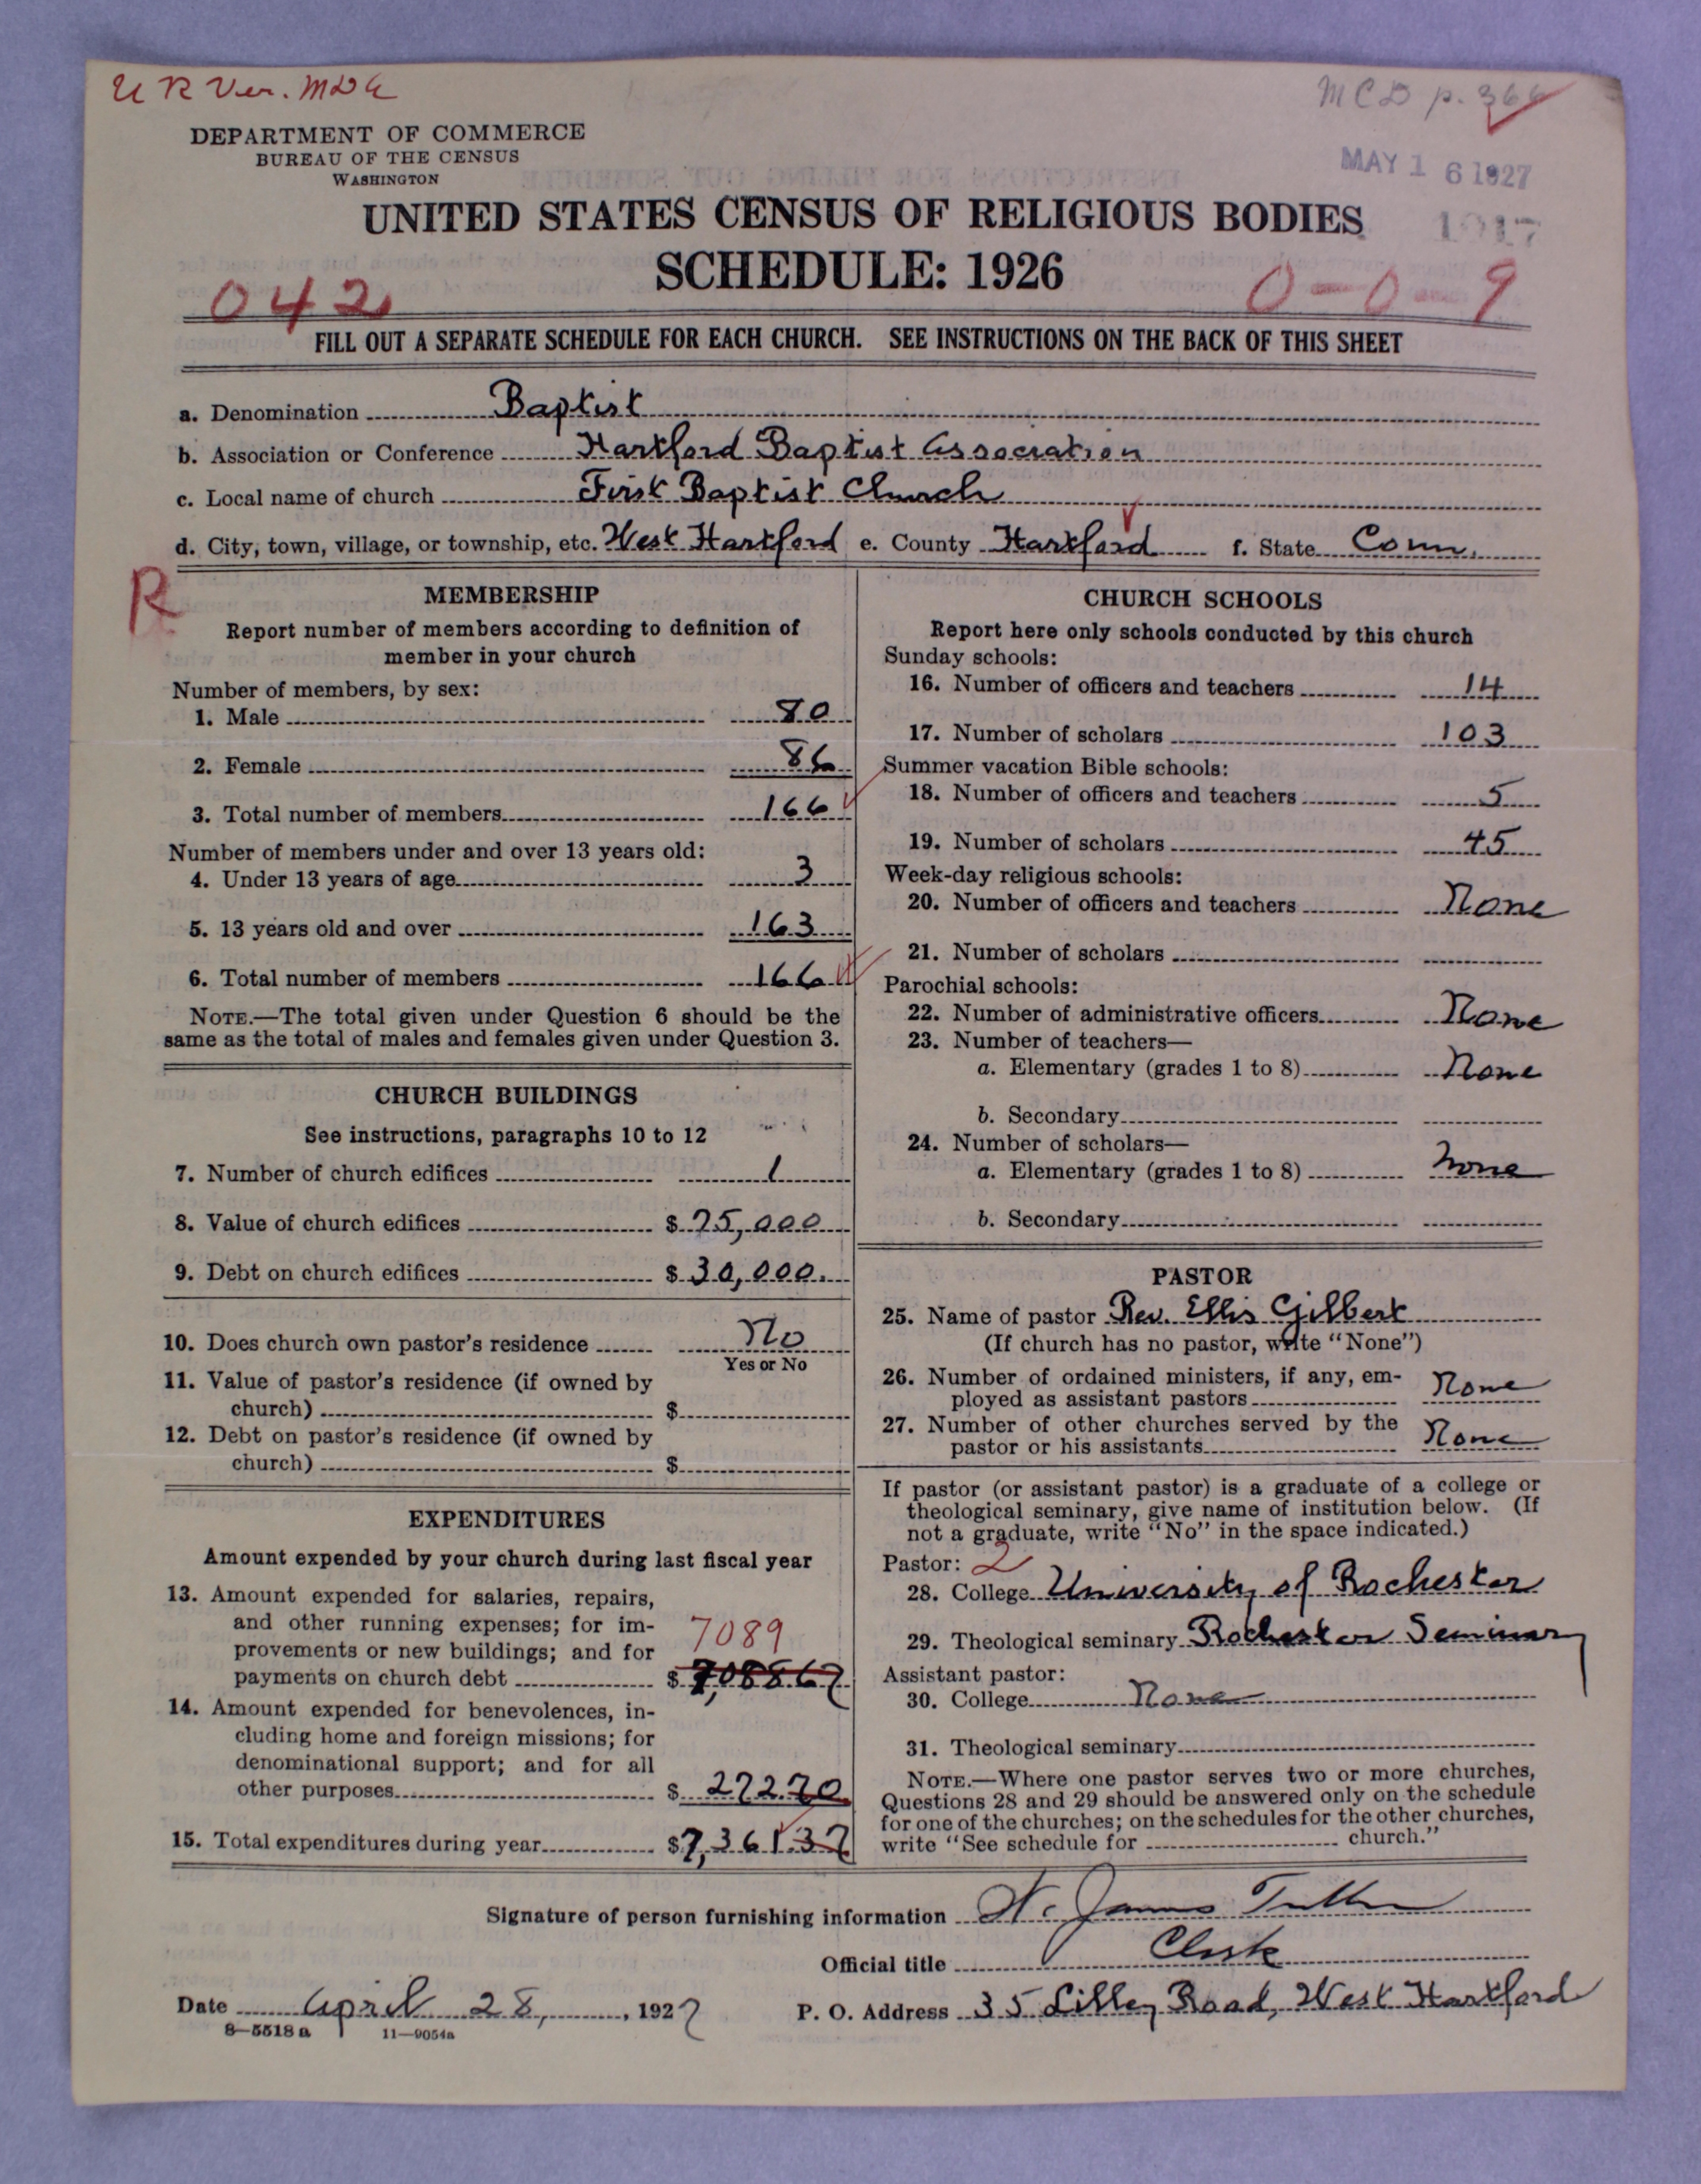 U R Ver. MDE
MCD p. 366
DEPARTMENT OF COMMERCE
BUREAU OF THE CENSUS
WASHINGTON
MAY 16 1927
1917
UNITED STATES CENSUS OF RELIGIOUS BODIES
SCHEDULE: 1926
042
0-0-9
FILL OUT A SEPARATE SCHEDULE FOR EACH CHURCH. SEE INSTRUCTIONS ON THE BACK OF THIS SHEET
a. Denomination Baptist
b. Association or Conference Hartford Baptist Association
c. Local name of church First Baptist Church
d. City, town, village, or township, etc. West Hartford e. County Hartford f. State Conn.
R
MEMBERSHIP
Report number of members according to definition of
member in your church
Number of members, by sex:
1. Male 80
2. Female 86
3. Total number of members 166
Number of members under and over 13 years old:
4. Under 13 years of age 3
5. 13 years old and over 163
6. Total number of members 166
NOTE.—The total given under Question 6 should be the
same as the total of males and females given under Question 3.
CHURCH BUILDINGS
See instructions, paragraphs 10 to 12
7. Number of church edifices 1
8. Value of church edifices $ 75,000
9. Debt on church edifices $ 30,000.
10. Does church own pastor's residence No
Yes or No
11. Value of pastor's residence (if owned by
church) $
12. Debt on pastor's residence (if owned by
church) $
EXPENDITURES
Amount expended by your church during last fiscal year
13. Amount expended for salaries, repairs,
and other running expenses; for im-
provements or new buildings; and for 7089
payments on church debt $ 7,088 67
14. Amount expended for benevolences, in-
cluding home and foreign missions; for
denominational support; and for all
other purposes $ 272.70
15. Total expenditures during year $7,361.37
CHURCH SCHOOLS
Report here only schools conducted by this church
Sunday schools:
16. Number of officers and teachers 14
17. Number of scholars 103
Summer vacation Bible schools:
18. Number of officers and teachers 5
19. Number of scholars 45
Week-day religious schools:
20. Number of officers and teachers None
21. Number of scholars
Parochial schools:
22. Number of administrative officers None
23. Number of teachers—
a. Elementary (grades 1 to 8) None
b. Secondary
24. Number of scholars—
a. Elementary (grades 1 to 8) None
b. Secondary
PASTOR
25. Name of pastor Rev. Ellis Gilbert
(If church has no pastor, write "None")
26. Number of ordained ministers, if any, em-
ployed as assistant pastors None
27. Number of other churches served by the
pastor or his assistants None
If pastor (or assistant pastor) is a graduate of a college or
theological seminary, give name of institution below. (If
not a graduate, write "No" in the space indicated.)
Pastor: 2
28. College University of Rochester
29. Theological seminary Rochester Seminary
Assistant pastor:
30. College None
31. Theological seminary
NOTE.—Where one pastor serves two or more churches,
Questions 28 and 29 should be answered only on the schedule
for one of the churches; on the schedules for the other churches,
write "See schedule for church."
Signature of person furnishing information W. James
Official title Clerk
Date April 28, 1927 P. O. Address 35 Lilley Road, West Hartford
8—5518 a 11—9054a